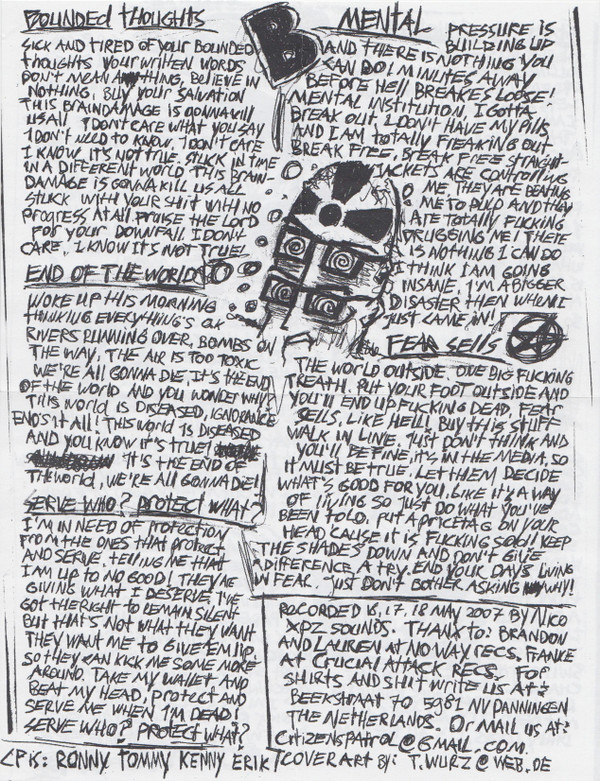 BOUNDED THOUGHTS
SICK AND TIRED OF YOUR BOUNDED
THOUGHTS YOUR WRITTEN WORDS
DON'T MEAN ANYTHING, BELIEVE IN
NOTHING, BUY YOUR SALVATION
THIS BRAINDAMAGE IS GONNA KILL
US ALL I DON'T CARE WHAT YOU SAY
I DON'T NEED TO KNOW, I DON'T CARE
I KNOW IT'S NOT TRUE. STUCK IN TIME
IN A DIFFERENT WORLD THIS BRAIN-
DAMAGE IS GONNA KILL US ALL
STUCK WITH YOUR SHIT WITH NO
PROGRESS AT ALL. PRAISE THE LORD
FOR YOUR DOWNFALL I DON'T
CARE, I KNOW IT'S NOT TRUE!
END OF THE WORLD
WOKE UP THIS MORNING
THINKING EVERYTHING'S OK
RIVERS RUNNING OVER, BOMBS ON
THE WAY, THE AIR IS TOO TOXIC
WE'RE ALL GONNA DIE, IT'S THE END
OF THE WORLD AND YOU WONDER WHY?
THIS WORLD IS DISEASED, IGNORANCE
ENDS IT ALL! THIS WORLD IS DISEASED
AND YOU KNOW IT'S TRUE!
IT'S THE END OF
THE WORLD, WE'RE ALL GONNA DIE!
SERVE WHO? PROTECT WHAT?
I'M IN NEED OF PROTECTION
FROM THE ONES THAT PROTECT
AND SERVE. TELLING ME THAT
I AM UP TO NO GOOD! THEY'RE
GIVING WHAT I DESERVE, I'VE
GOT THE RIGHT TO REMAIN SILENT
BUT THAT'S NOT WHAT THEY WANT
THEY WANT ME TO GIVE 'EM UP,
SO THEY CAN KICK ME SOME MORE
AROUND. TAKE MY WALLET AND
BEAT MY HEAD, PROTECT AND
SERVE ME WHEN I'M DEAD!
SERVE WHO? PROTECT WHAT?
B
MENTAL
PRESSURE IS
BUILDING UP
AND THERE IS NOTHING YOU
CAN DO! MINUTES AWAY
BEFORE HELL BREAKES LOOSE!
MENTAL INSTITUTION, I GOTTA
BREAK OUT, I DON'T HAVE MY PILLS
AND I AM TOTALLY FREAKING OUT
BREAK FREE, BREAK FREE STRAIGHT-
JACKETS ARE CONTROLLING
ME, THEY ARE BEATING
ME TO PULP AND THEY
ARE TOTALLY FUCKING
DRUGGING ME! THERE
IS NOTHING I CAN DO
I THINK I AM GOING
INSANE, I'M A BIGGER
DISASTER THEN WHEN I
JUST CAME IN!
FEAR SELLS
THE WORLD OUTSIDE, ONE BIG FUCKING
TREATH. PUT YOUR FOOT OUTSIDE AND
YOU'LL END UP FUCKING DEAD. FEAR
SELLS, LIKE HELL! BUY THIS STUFF
WALK IN LINE. JUST DON'T THINK AND
YOU'LL BE FINE, IT'S IN THE MEDIA, SO
IT MUST BE TRUE. LET THEM DECIDE
WHAT'S GOOD FOR YOU, LIKE IT'S A WAY
OF LIVING SO JUST DO WHAT YOU'VE
BEEN TOLD. PUT A PRICETAG ON YOUR
HEAD 'CAUSE IT IS FUCKING SOLD! KEEP
THE SHADES DOWN AND DON'T GIVE
A DIFFERENCE A TRY. END YOUR DAYS LIVING
IN FEAR. JUST DON'T BOTHER ASKING WHY!
RECORDED 16, 17, 18 MAY 2007 BY NICO
XPZ SOUNDS. THANX TO: BRANDON
AND LAUREN AT NO WAY RECS. FRANKE
AT CRUCIAL ATTACK RECS. FOR
SHIRTS AND SHIT WRITE US AT:
BEEKSTRAAT 70 5981 NV PANNINGEN
THE NETHERLANDS. OR MAIL US AT:
CITIZENSPATROL@GMAIL.COM
CP IS: RONNY TOMMY KENNY ERIK COVER ART BY: T.WURZ@WEB.DE